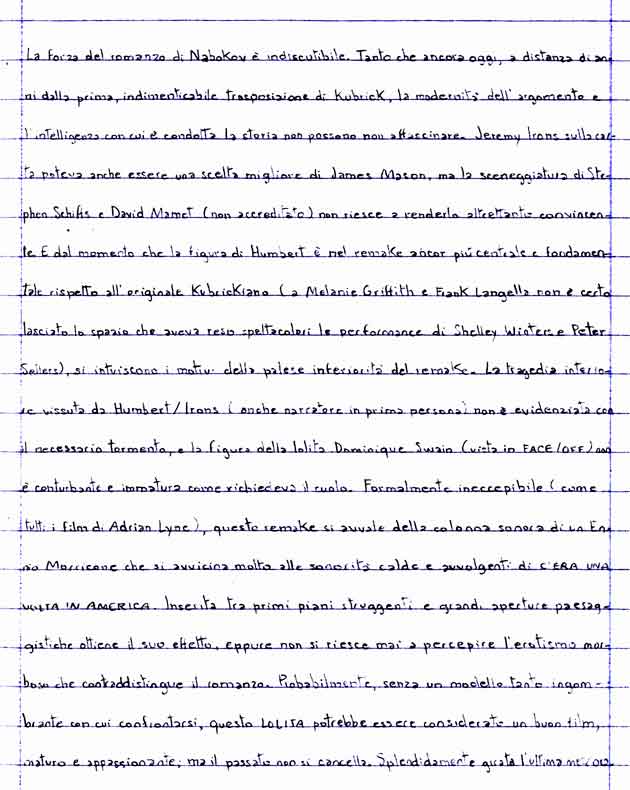 La forza del romanzo di Nabokov è indiscutibile. Tanto che ancora oggi, a distanza di an
ni dalla prima, indimenticabile trasposizione di Kubrick, la modernità dell'argomento e
l'intelligenza con cui è condotta la storia non possono non affascinare. Jeremy Irons sulla car-
ta poteva anche essere una scelta migliore di James Mason, ma la sceneggiatura di Ste-
phen Schiffs e David Mamet (non accreditato) non riesce a renderlo altrettanto convincen-
te E dal momento che la figura di Humbert è nel remake ancor più centrale e fondamen-
tale rispetto all'originale Kubrickiano (a Melanie Griffith e Frank Langella non è certo
lasciato lo spazio che aveva reso spettacolari le performance di Shelley Winters e Peter
Sellers), si intuiscono i motivi della palese inferiorità del remake. La tragedia interio-
re vissuta da Humbert/Irons (anche narratore in prima persona) non è evidenziata con
il necessario tormento, e la figura della lolita Dominique Swain (vista in FACE/OFF) non
è conturbante e immatura come richiedeva il ruolo. Formalmente ineccepibile (come
tutti i film di Adrian Lyne), questo remake si avvale della colonna sonora di un En-
nio Morricone che si avvicina molto alle sonorità calde e avvolgenti di C'ERA UNA
VOLTA IN AMERICA. Inserita tra primi piani struggenti e grandi aperture paesag-
gistiche ottiene il suo effetto, eppure non si riesce mai a percepire l'erotismo mor-
boso che contraddistingue il romanzo. Probabilmente, senza un modello tanto ingom-
brante con cui confrontarsi, questo LOLITA potrebbe essere considerato un buon film,
maturo e appassionante; ma il passato non si cancella. Splendidamente girata l'ultima